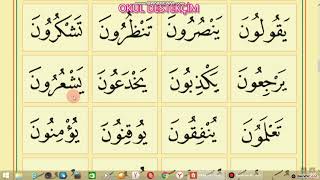 OKUL DESTEKÇİM
يَقُولُونَ يَنْصُرُونَ تَنْظُرُونَ تَشْكُرُونَ
يَرْجِعُونَ يَكْذِبُونَ يَخْدَعُونَ يَشْعُرُونَ
تَعْلَمُونَ يُنْفِقُونَ يُوقِنُونَ يُؤْمِنُونَ